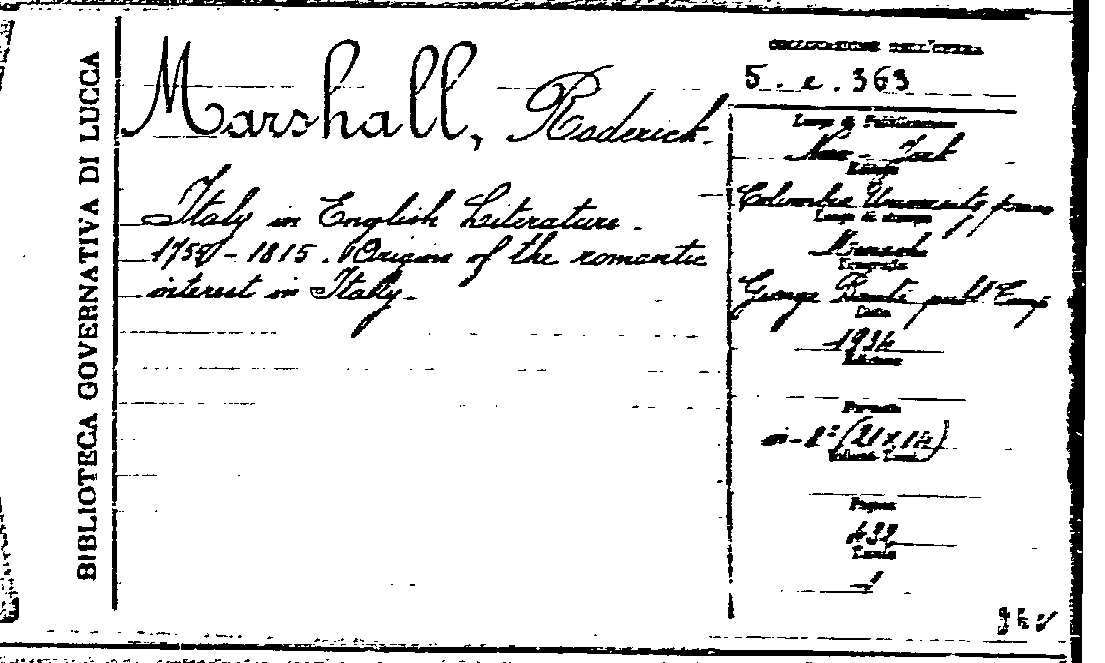 BIBLIOTECA GOVERNATIVA DI LUCCA
Marshall, Roderick.
Italy in English Literature.
1755-1815. Origins of the romantic
interest in Italy.
COLLOCAZIONE DELL'OPERA
5. e. 363
Luogo di Pubblicazione
New-York
Columbia University press
Luogo di stampa
George Banta publ Comp
Data
1934
Edizione
Formato
in-8° (21x14)
Pagine
432